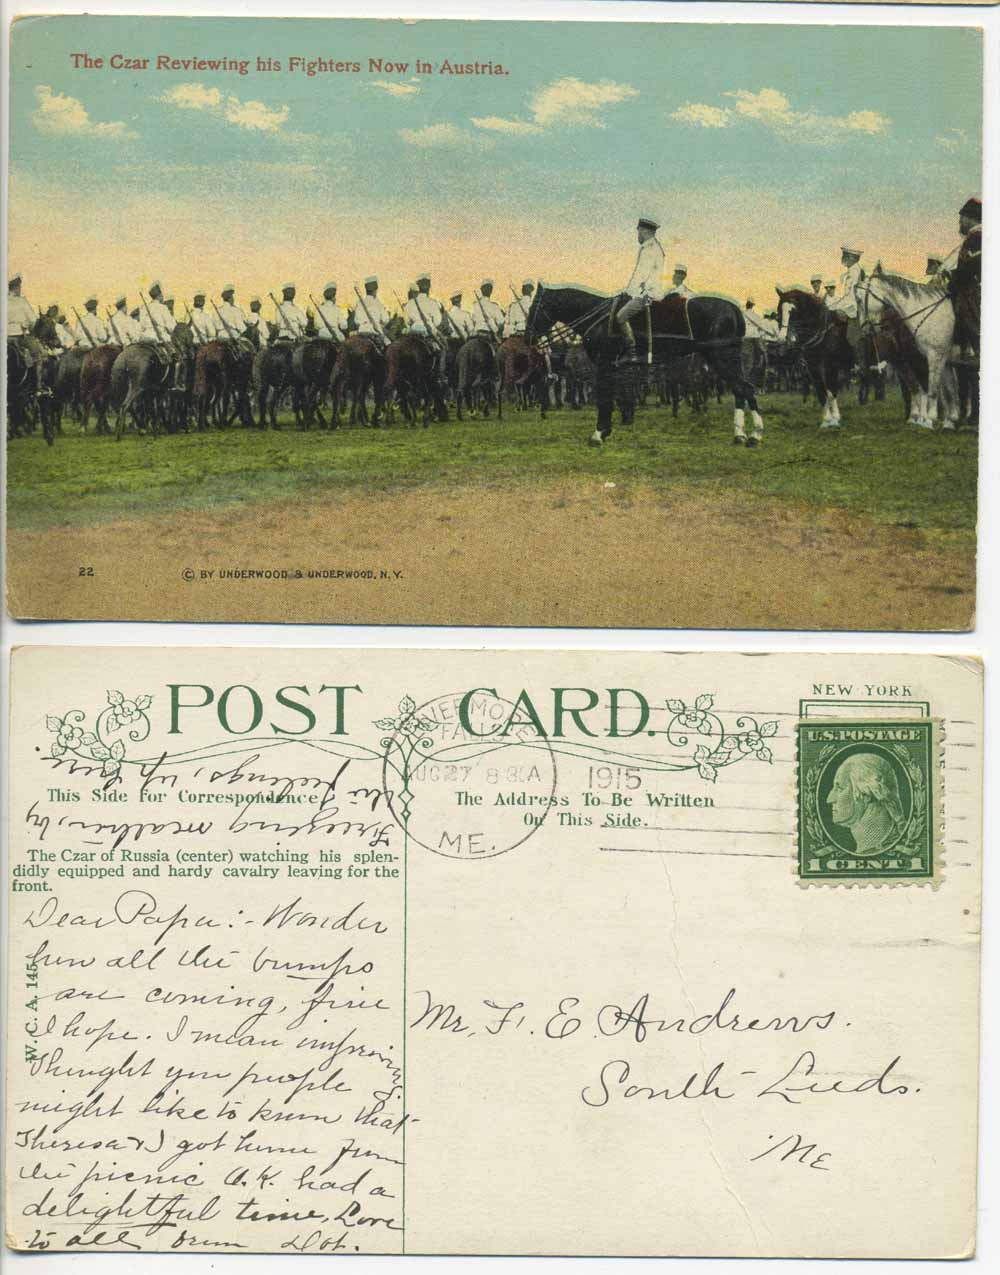 The Czar Reviewing his Fighters Now in Austria.
22
© BY UNDERWOOD & UNDERWOOD, N. Y.
POST CARD.
NEW YORK
U.S. POSTAGE
1 CENT 1
LIVERMORE
FALLS
AUG 27 8 30A
1915
ME.
This Side For Correspondence
The Address To Be Written
On This Side.
The Czar of Russia (center) watching his splen-
didly equipped and hardy cavalry leaving for the
front.
W. C. A. 145
Dear Papa:- Wonder
how all the bumps
are coming, fine
I hope. I mean improving.
Thought you people
might like to know that
Theresa & I got home from
the picnic O.K. had a
delightful time. Love
to all from Dot.
Freezing weather, by
the feelings, up here
Mr. F. E. Andrews.
South Leeds.
Me